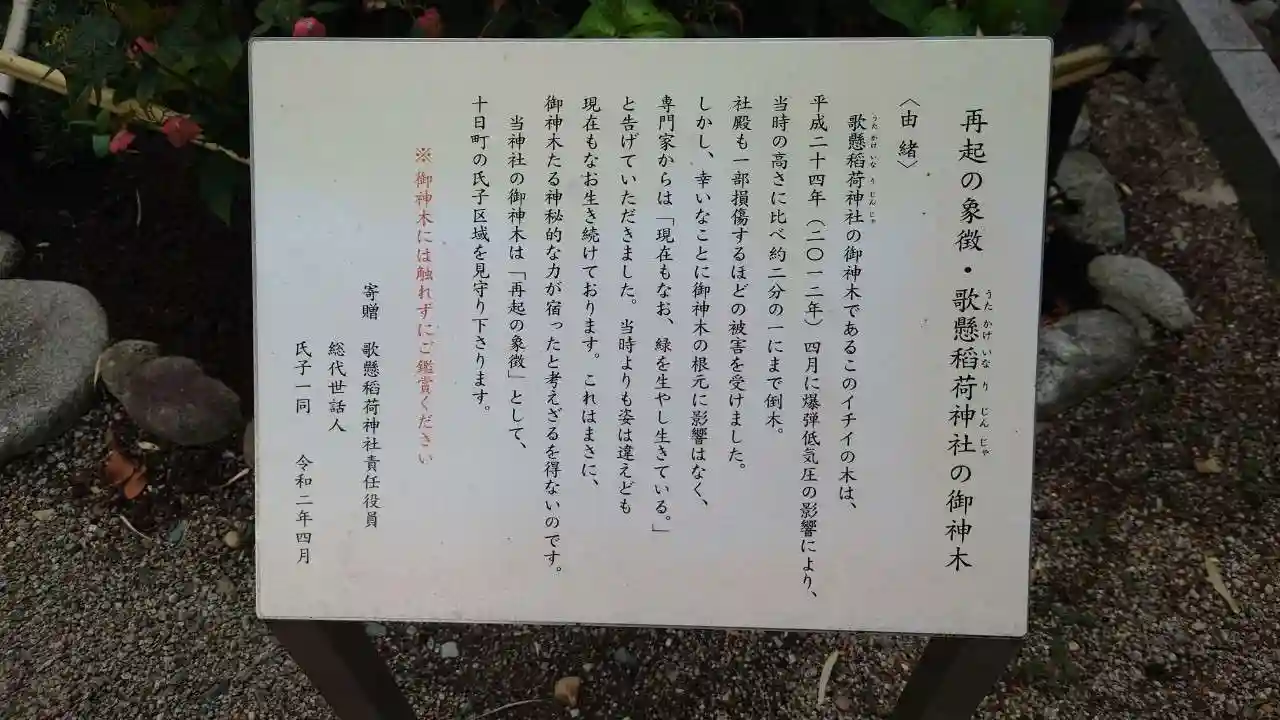 再起の象徴・歌懸稲荷神社の御神木
うた かけ いな り じん じゃ
〈由緒〉
歌懸稲荷神社の御神木であるこのイチイの木は、
うた かけ いな り じん じゃ
平成二十四年（二〇一二年）四月に爆弾低気圧の影響により、
当時の高さに比べ約二分の一にまで倒木。
社殿も一部損傷するほどの被害を受けました。
しかし、幸いなことに御神木の根元に影響はなく、
専門家からは「現在もなお、緑を生やし生きている。」
と告げていただきました。当時よりも姿は違えども
現在もなお生き続けております。これはまさに、
御神木たる神秘的な力が宿ったと考えざるを得ないのです。
当神社の御神木は「再起の象徴」として、
十日町の氏子区域を見守り下さります。
※御神木には触れずにご鑑賞ください
寄贈 歌懸稲荷神社責任役員
総代世話人
氏子一同 令和二年四月